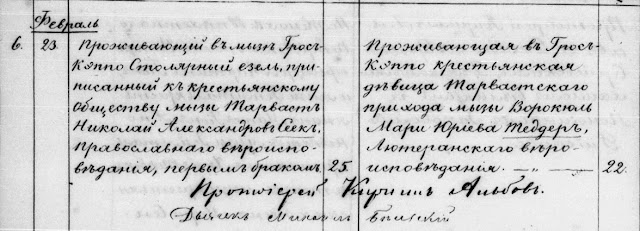 Февраль
6. 23 Проживающій въ мызѣ Гросъ-
Кэппо Столярный езель, при-
писанный къ крестьянскому
обществу мызы Тарвастъ
Николай Александровъ Сеекъ,
православнаго вѣроиспо-
вѣданія, первымъ бракомъ. 25.
Проживающая въ Гросъ-
Кэппо крестьянская
дѣвица Тарвастскаго
прихода мызы Ворокюль
Мари Юріева Теддеръ,
Лютеранскаго вѣро-
исповѣданія. 22.
Протоіерей Кириллъ Альбовъ.
Дьячекъ Михаилъ